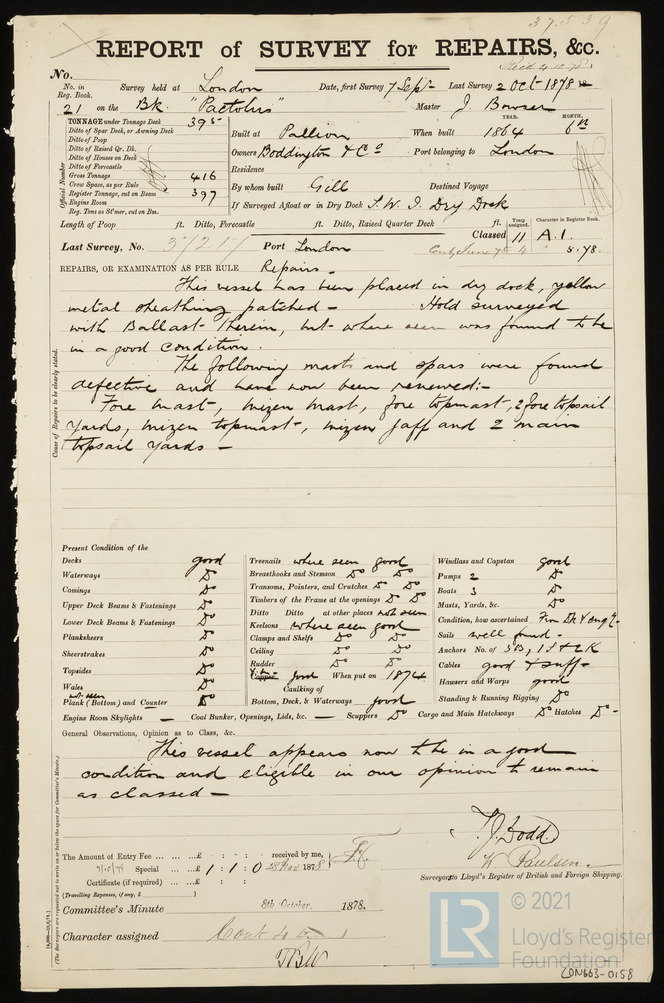 37539
REPORT of SURVEY for REPAIRS, &c.
No.
No. in Reg. Book. Survey held at London Date, first Survey 7 Sept Last Survey 2 Oct 1878
21 on the Bk "Pactolus" Master J. Bowser
TONNAGE under Tonnage Deck 395
Ditto of Spar Deck, or Awning Deck
Ditto of Poop
Ditto of Raised Qr. Dk.
Ditto of Houses on Deck
Ditto of Forecastle
Gross Tonnage 416
Crew Space, as per Rule
Register Tonnage, cut on Beam 397
Engine Room
Reg. Tons as St'mer, cut on Bm.
Official Number
YEAR. MONTH.
Built at Pallion When built 1864 6
Owners Boddington & Co Port belonging to London
Residence
By whom built Gill Destined Voyage
If Surveyed Afloat or in Dry Dock S. W. I. Dry Dock
Length of Poop ft. Ditto, Forecastle ft. Ditto, Raised Quarter Deck ft.
Years assigned. Character in Register Book.
Classed 11 A.1.
Last Survey, No. 37217 Port London 5.78.
REPAIRS, OR EXAMINATION AS PER RULE Repairs.
This vessel has been placed in dry dock, yellow
metal sheathing patched - Hold surveyed
with Ballast therein, but where seen was found to be
in a good condition.
The following masts and spars were found
defective and have now been renewed:-
Fore mast, mizen mast, fore topmast, 2 fore topsail
yards, mizen topmast, mizen gaff and 2 main
topsail yards -
Cause of Repairs to be clearly stated.
Present Condition of the
Decks good
Waterways Do
Comings Do
Upper Deck Beams & Fastenings Do
Lower Deck Beams & Fastenings Do
Planksheers Do
Sheerstrakes Do
Topsides Do
Wales Do
not seen
Plank (Bottom) and Counter Do
Treenails where seen good
Breasthooks and Stemson Do Do
Transoms, Pointers, and Crutches Do Do
Timbers of the Frame at the openings Do Do
Ditto Ditto at other places not seen
Keelsons where seen good
Clamps and Shelfs Do Do
Ceiling Do Do
Rudder Do Do
Copper good When put on 1874
Caulking of
Bottom, Deck, & Waterways good
Windlass and Capstan good
Pumps 2 Do
Boats 3 Do
Masts, Yards, &c. Do
Condition, how ascertained From Dk & enqy
Sails well found -
Anchors No. of 3B, 1S & 2K
Cables good & suff
Hawsers and Warps good
Standing & Running Rigging Do
Engine Room Skylights — Coal Bunker, Openings, Lids, &c. — Scuppers Do Cargo and Main Hatchways Do Hatches Do -
General Observations, Opinion as to Class, &c.
This vessel appears now to be in a good
condition and eligible in our opinion to remain
as classed -
T. J. Dodd.
W Paulsen.
Surveyors to Lloyd's Register of British and Foreign Shipping.
The Amount of Entry Fee ... ... £ : : received by me,
7/10/78 Special ... £ 1 : 1 : 0 1878
Certificate (if required) ... £ : :
(Travelling Expenses, if any, £ )
Committee's Minute 8th October, 1878.
Character assigned
(The Surveyors are requested not to write on or below the space for Committee's Minute.)
© 2021
LR
Lloyd's Register
Foundation
LON663-0158